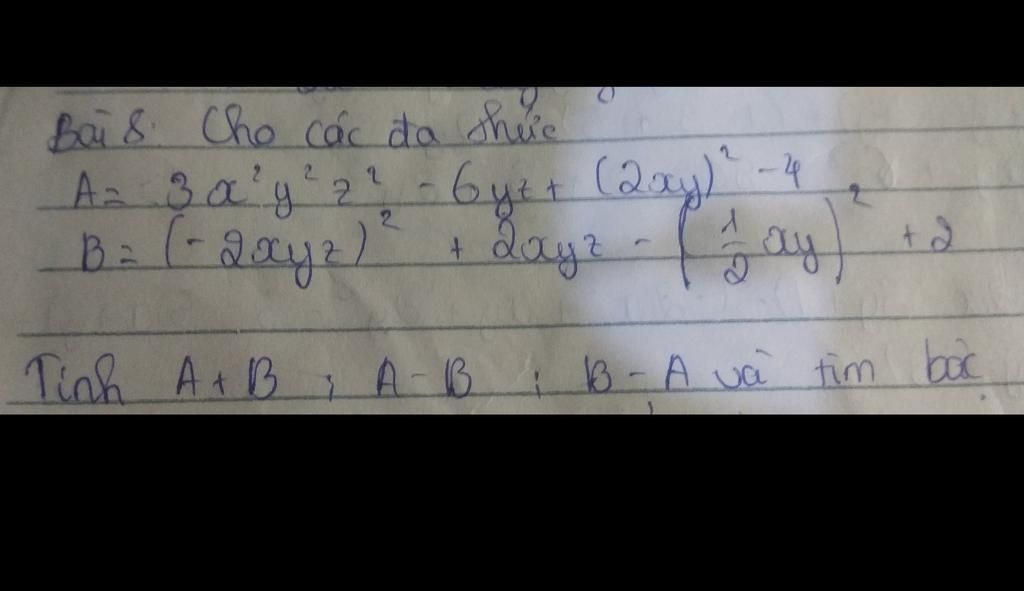 Bài 8. Cho các đa thức
A = 3x²y²z² - 6yz + (2xy)² - 4
B = (-2xyz)² + 2xyz - (1/2 xy)² + 2
Tính A + B ; A - B ; B - A và tìm bậc